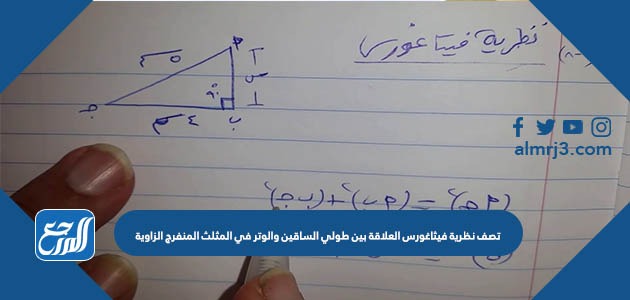 نظرية فيثاغورس
(٨-
٥ سم
م
س
٩٠°
ج
ب
٤ سم
almrj3.com
(م ج)² = (م ب)² + (ب ج)²
المرجع
تصف نظرية فيثاغورس العلاقة بين طولي الساقين والوتر في المثلث المنفرج الزاوية